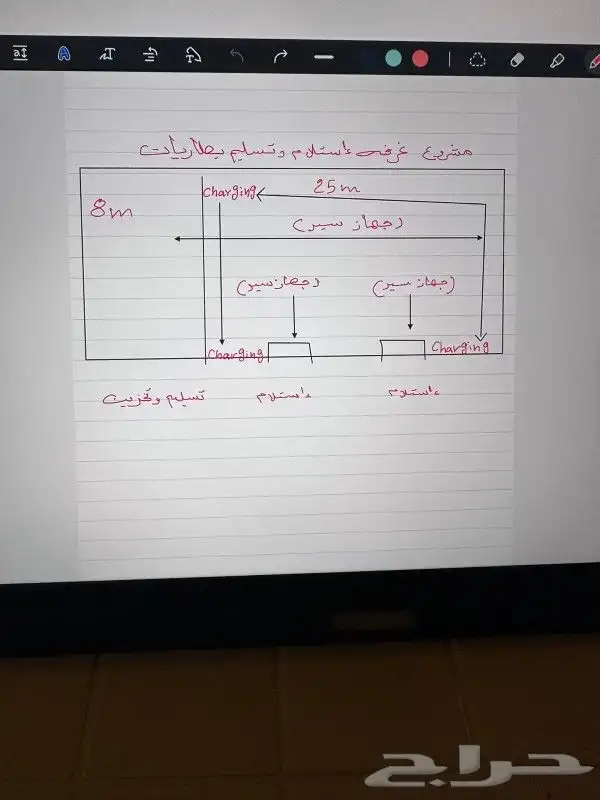 مشروع غرفه ءاستلام وتسليم بطاريات
Charging 25m
8m
(جهاز سير)
(جهاز سير) (جهاز سير)
Charging Charging
ءاستلام ءاستلام تسليم وتخزين
حراج